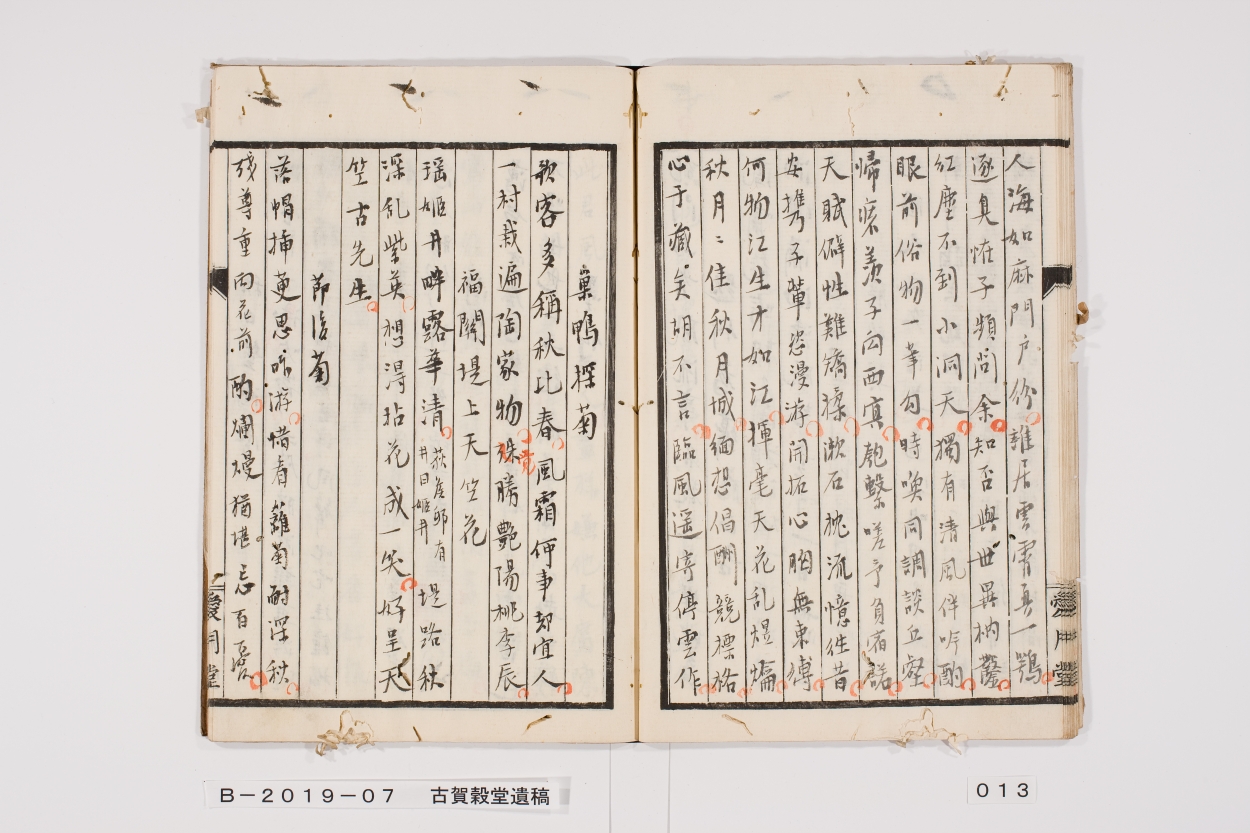 人海如麻門戸份離居雲霄真一鶚
逐臭怪子頻問余知否與世異枘鑿
紅塵不到小洞天獨有清風伴吟酌
眼前俗物一筆勾時喚同調談丘壑
帰裝羨子向西寅匏繋嗟予負宿諾
天賦僻性難矯揉漱石枕流憶徃昔
安携子輩恣漫游開拓心胸無束縛
何物江生才如江揮毫天花乱燿爚
秋月〻佳秋月城緬想倡酬競標格
心予藏矣胡不言臨風遥寄停雲作
巣鴨探菊
歌客多稱秋比春風霜何事却宜人
一村栽遍陶家物殊勝艶陽桃李辰
競
福關堤上天竺花
瑶姫井畔露華清 有井曰姫井 堤路秋
深乱紫英想得拈花成一笑好呈天
竺古先生
節後菊
落帽挿茰思昨游惜看籬菊耐深秋
残尊重向花前酌爛熳猶堪忘百憂
愛月堂
愛月堂
B－2019－07 古賀穀堂遺稿
013